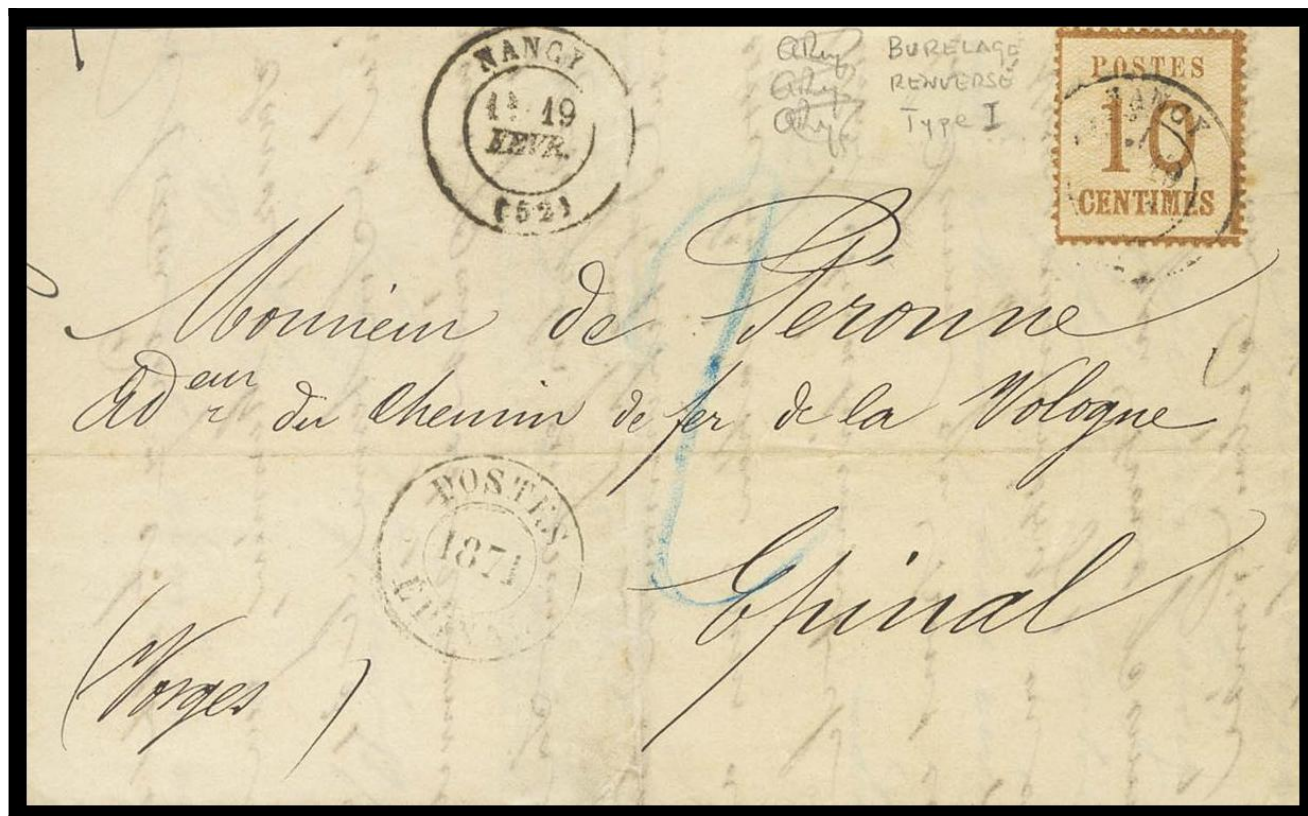 NANCY
19
FEVR.
(52)
BURELAGE
RENVERSÉ
Type I
POSTES
10
CENTIMES
NANCY
2
Monsieur de Péronne
Ad eur du Chemin de fer de la Vologne
Epinal
POSTES
1871
EPINAL
(Vosges)